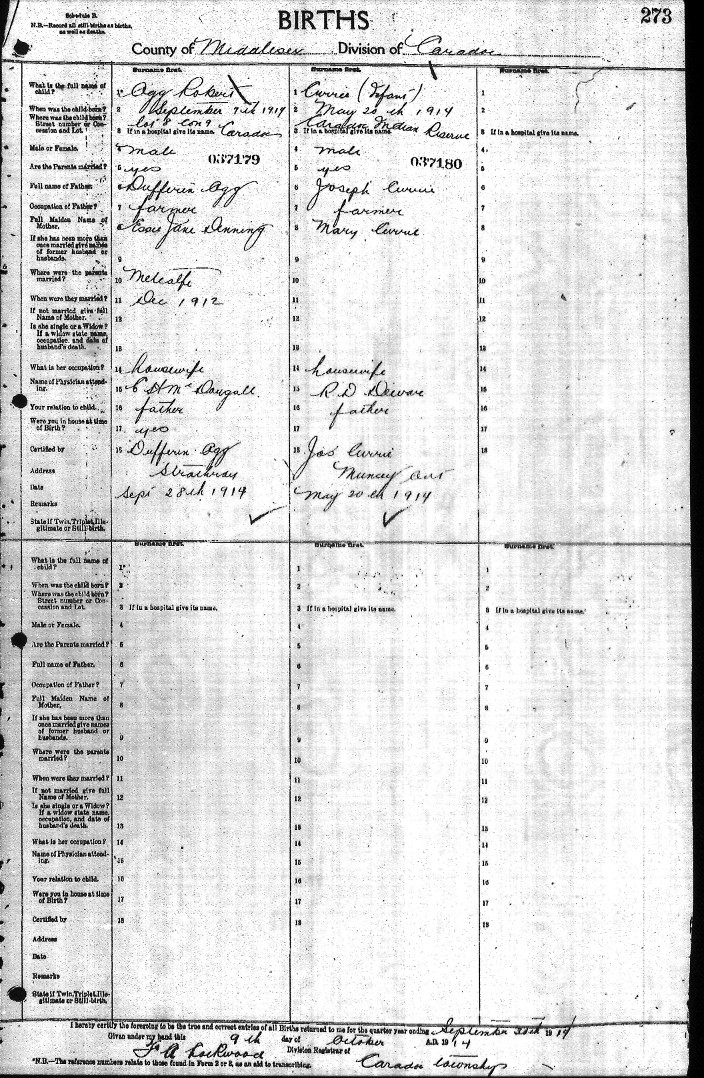 Schedule B.
N.B.—Record all still-births as births, as well as deaths.
BIRTHS
273
County of Middlesex Division of Caradoc
Surname first. Surname first. Surname first.
What is the full name of child? 1 Agg Robert 1 Currie (Infant) 1
When was the child born? 2 September 7th 1914 2 May 20th 1914 2
Where was the child born? Street number or Concession and Lot. 3 If in a hospital give its name. Lot 8 Con 9 Caradoc 3 If in a hospital give its name. Caradoc Indian Reserve 3 If in a hospital give its name.
Male or Female. 4 male 4 male 4
037179 037180
Are the Parents married? 5 yes 5 yes 5
Full name of Father. 6 Dufferin Agg 6 Joseph Currie 6
Occupation of Father? 7 farmer 7 farmer 7
Full Maiden Name of Mother. 8 Essie Jane Denning 8 Mary Currie 8
If she has been more than once married give names of former husband or husbands. 9 9 9
Where were the parents married? 10 Metcalfe 10 10
When were they married? 11 Dec 1912 11 11
If not married give full Name of Mother. 12 12 12
Is she single or a Widow? If a widow state name, occupation, and date of husband's death. 13 13 13
What is her occupation? 14 housewife 14 housewife 14
Name of Physician attending. 15 C H McDougall 15 R D Dewar 15
Your relation to child. 16 father 16 father 16
Were you in house at time of Birth? 17 yes 17 17
Certified by 18 Dufferin Agg 18 Jos Currie 18
Address Strathroy Muncey Ont
Date Sept 28th 1914 May 20th 1914
Remarks
State if Twin, Triplet, Illegitimate or Still-birth.
Surname first. Surname first. Surname first.
What is the full name of child? 1* 1 1
When was the child born? 2 2 2
Where was the child born? Street number or Concession and Lot. 3 If in a hospital give its name. 3 If in a hospital give its name. 3 If in a hospital give its name.
Male or Female. 4 4 4
Are the Parents married? 5 5 5
Full name of Father. 6 6 6
Occupation of Father? 7 7 7
Full Maiden Name of Mother. 8 8 8
If she has been more than once married give names of former husband or husbands. 9 9 9
Where were the parents married? 10 10 10
When were they married? 11 11 11
If not married give full Name of Mother. 12 12 12
Is she single or a Widow? If a widow state name, occupation, and date of husband's death. 13 13 13
What is her occupation? 14 14 14
Name of Physician attending. 15 15 15
Your relation to child. 16 16 16
Were you in house at time of Birth? 17 17 17
Certified by 18 18 18
Address
Date
Remarks
State if Twin, Triplet, Illegitimate or Still-birth.
I hereby certify the foregoing to be the true and correct entries of all Births returned to me for the quarter year ending September 30th 1914
Given under my hand this 9th day of October A.D. 1914
Lockwood Division Registrar of
*N.B.—The reference numbers relate to those found in Form 2 or 3, as an aid to transcribing. Caradoc township